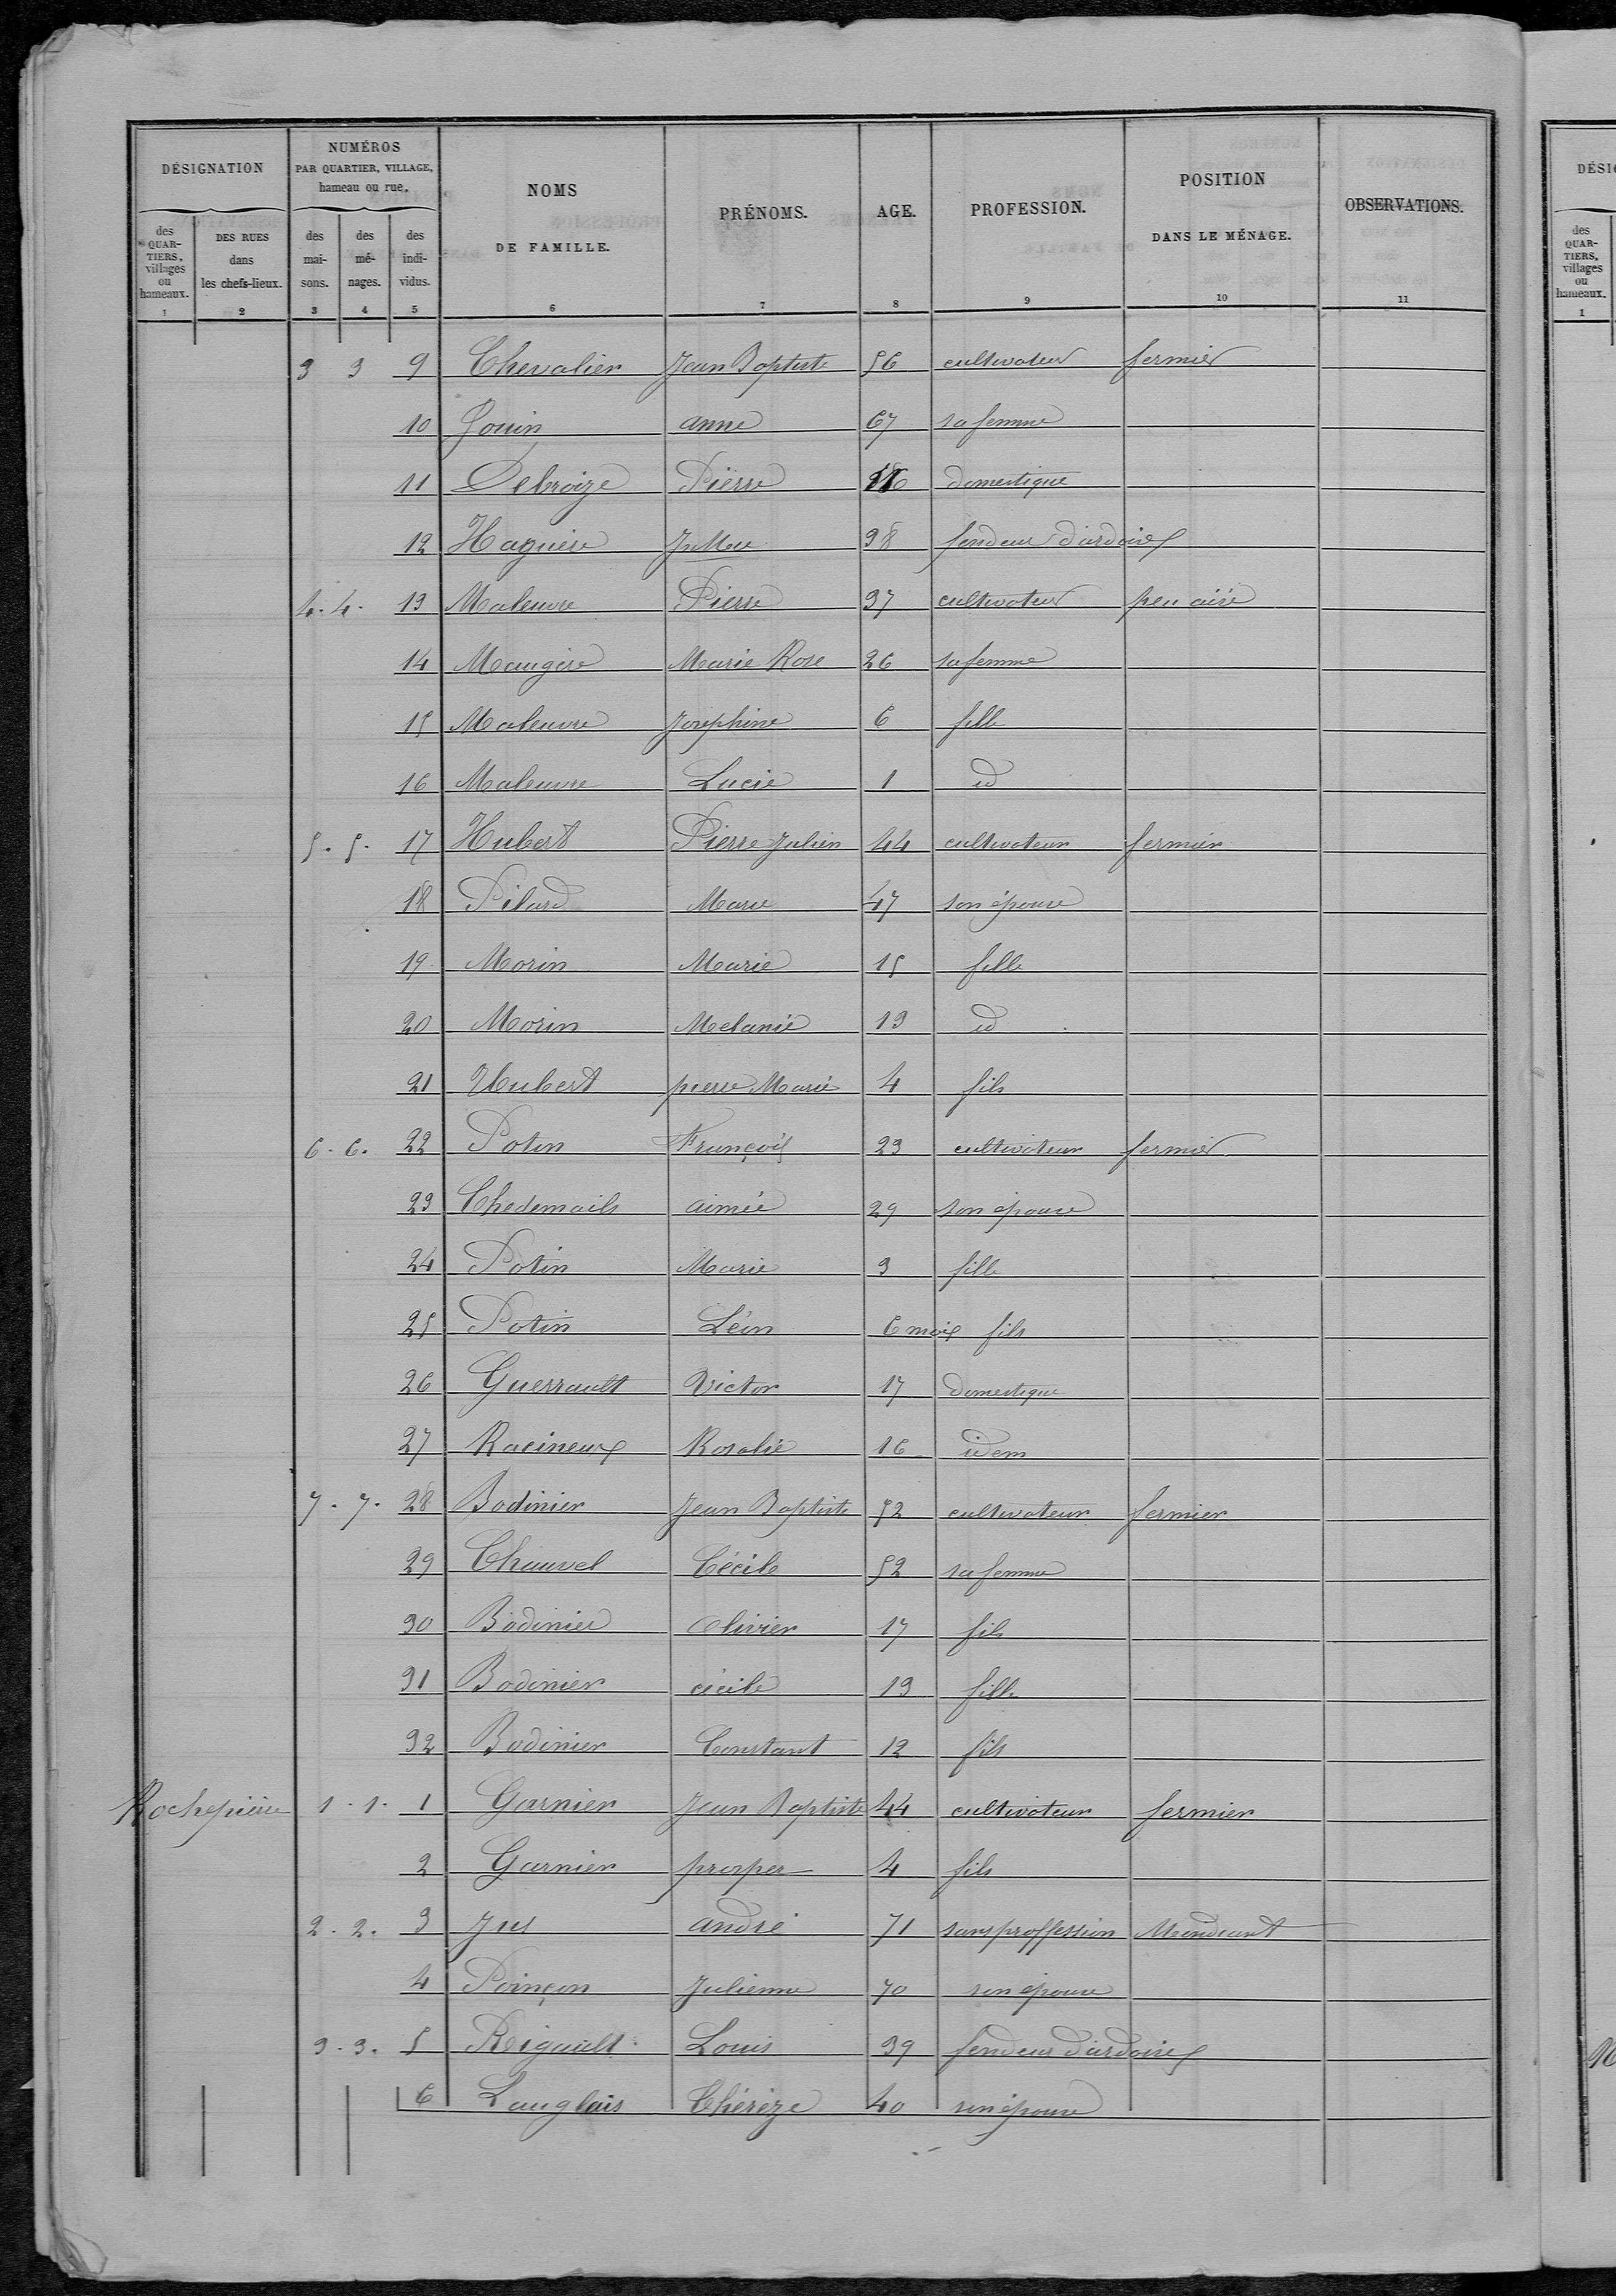 DÉSIGNATION
NUMÉROS
PAR QUARTIER, VILLAGE,
hameau ou rue.
NOMS
DE FAMILLE.
PRÉNOMS.
AGE.
PROFESSION.
POSITION
DANS LE MÉNAGE.
OBSERVATIONS.
des QUAR-TIERS, villages ou hameaux.
DES RUES dans les chefs-lieux.
des mai-sons.
des mé-nages.
des indi-vidus.
1 2 3 4 5 6 7 8 9 10 11
3 3 9 Chevalier Jean Baptiste 56 cultivateur fermier
10 Jouin anne 67 sa femme
11 Debroize Pierre domestique
12 Haguère 38 fendeur d'ardoises
4. 4. 13 Maleuvre Pierre 37 cultivateur peu aisé
14 Maugère Marie Rose 26 sa femme
15 Maleuvre Joséphine 6 fille
16 Maleuvre Lucie 1 id
5. 5. 17 Hubert Pierre Julien 44 cultivateur fermier
18 Pilard Marie 47 son épouse
19 Morin Marie 15 fille
20 Morin Melanie 13 id
21 Hubert pierre Marie 4 fils
6. 6. 22 Potin François 23 cultivateur fermier
23 Chedemails aimée 29 son épouse
24 Potin Marie 3 fille
25 Potin Léon 6 mois fils
26 Guerrault Victor 17 domestique
27 Racineux Rosalie 16 idem
7. 7. 28 Bodinier Jean Baptiste 52 cultivateur fermier
29 Chauvel Cécile 52 sa femme
30 Bodinier Olivier 17 fils
31 Bodinier cécile 13 fille
32 Bodinier Constant 12 fils
Rochepierre 1. 1. 1 Garnier Jean Baptiste 44 cultivateur fermier
2 Garnier prosper 4 fils
2. 2. 3 Jus andré 71 sans proffession Mendiant
4 Poinçon Julienne 70 son épouse
3. 3. 5 Reigault Louis 39 fendeur d'ardoises
6 Langlais Thérèze 40 son épouse
DÉSIG
des QUAR-TIERS, villages ou hameaux.
1